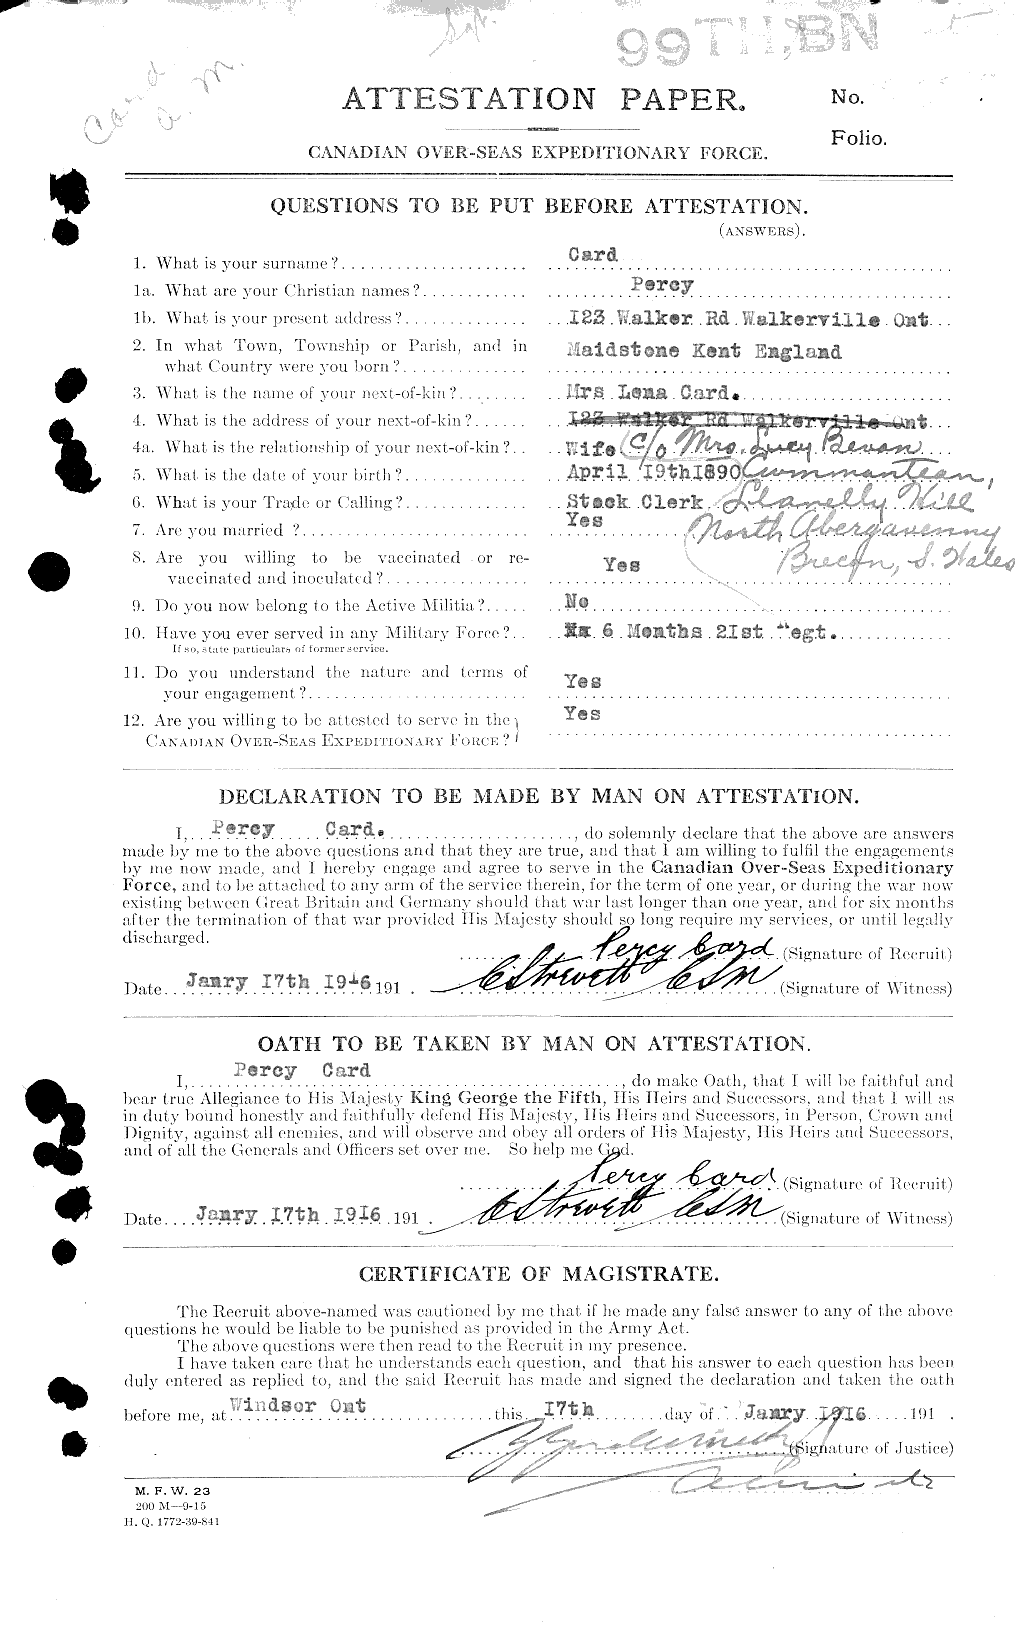 Sgt.
99TH, BN
Card
a. M.
ATTESTATION PAPER.
No.
Folio.
CANADIAN OVER-SEAS EXPEDITIONARY FORCE.
QUESTIONS TO BE PUT BEFORE ATTESTATION.
(ANSWERS).
1. What is your surname? Card
1a. What are your Christian names? Percy
1b. What is your present address? 123 Walker Rd Walkerville Ont
2. In what Town, Township or Parish, and in
what Country were you born? Maidstone Kent England
3. What is the name of your next-of-kin? Mrs Lena Card.
4. What is the address of your next-of-kin? 123 Walker Rd Walkerville Ont
4a. What is the relationship of your next-of-kin? Wife c/o Mrs. Lucy Bevan
5. What is the date of your birth? April 19th 1890 Cwmmantean,
6. What is your Trade or Calling? Stock Clerk Llanelly Hill
7. Are you married ? Yes North Abergavenny
Brecon, S. Wales
8. Are you willing to be vaccinated or re-
vaccinated and inoculated? Yes
9. Do you now belong to the Active Militia? No
10. Have you ever served in any Military Force? 6 Months 21st Regt.
If so, state particulars of former service.
11. Do you understand the nature and terms of
your engagement? Yes
12. Are you willing to be attested to serve in the Yes
CANADIAN OVER-SEAS EXPEDITIONARY FORCE?
DECLARATION TO BE MADE BY MAN ON ATTESTATION.
I, Percy Card. , do solemnly declare that the above are answers
made by me to the above questions and that they are true, and that I am willing to fulfil the engagements
by me now made, and I hereby engage and agree to serve in the Canadian Over-Seas Expeditionary
Force, and to be attached to any arm of the service therein, for the term of one year, or during the war now
existing between Great Britain and Germany should that war last longer than one year, and for six months
after the termination of that war provided His Majesty should so long require my services, or until legally
discharged.
Percy Card (Signature of Recruit)
Date Janry 17th 1916 191 . CSM (Signature of Witness)
OATH TO BE TAKEN BY MAN ON ATTESTATION.
I, Percy Card , do make Oath, that I will be faithful and
bear true Allegiance to His Majesty King George the Fifth, His Heirs and Successors, and that I will as
in duty bound honestly and faithfully defend His Majesty, His Heirs and Successors, in Person, Crown and
Dignity, against all enemies, and will observe and obey all orders of His Majesty, His Heirs and Successors,
and of all the Generals and Officers set over me. So help me God.
Percy Card (Signature of Recruit)
Date Janry 17th 1916 191 . CSM (Signature of Witness)
CERTIFICATE OF MAGISTRATE.
The Recruit above-named was cautioned by me that if he made any false answer to any of the above
questions he would be liable to be punished as provided in the Army Act.
The above questions were then read to the Recruit in my presence.
I have taken care that he understands each question, and that his answer to each question has been
duly entered as replied to, and the said Recruit has made and signed the declaration and taken the oath
before me, at Windsor Ont this 17th day of Janry 1916 191 .
(Signature of Justice)
M. F. W. 23
200 M—9-15
H. Q. 1772-39-841